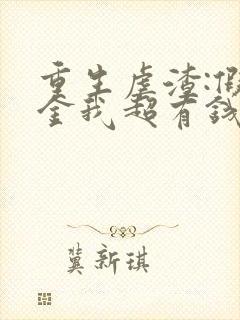 重生虐渣:假
金我超有钱
冀新琪